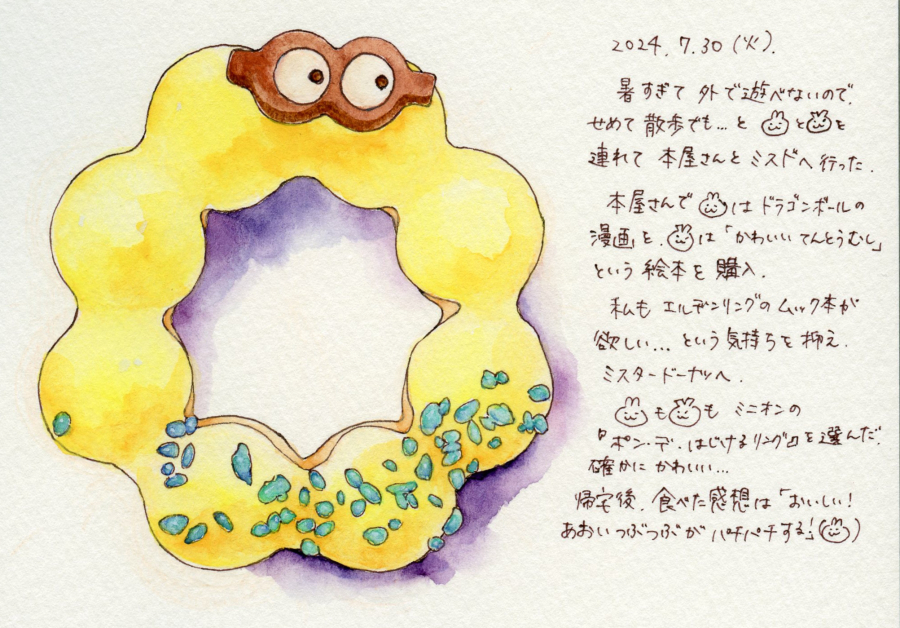 2024.7.30(火).
暑すぎて 外で遊べないので、
せめて 散歩でも…と とを
連れて 本屋さんと ミスドへ 行った.
本屋さんで はドラゴンボールの
漫画を、は「かわいい てんとうむし」
という 絵本を 購入.
私も エルデンリングの ムック本が
欲しい…という気持ちを 抑え.
ミスタードーナツへ.
も も ミニオンの
『ポン・デ・はじけるリング』を選んだ.
確かに かわいい…
帰宅後、食べた感想は「おいしい!
あおい つぶつぶが パチパチする!」()